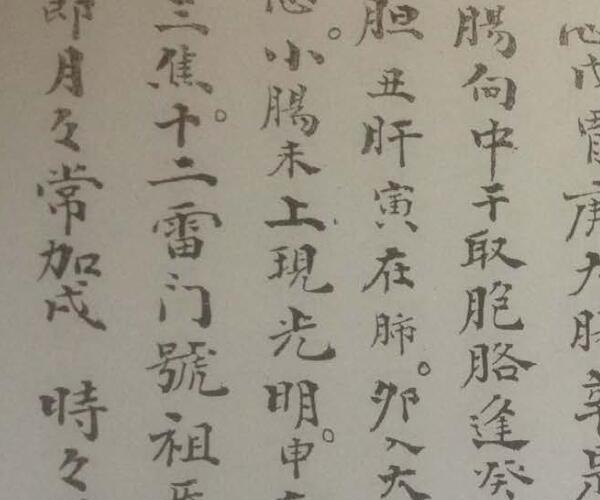 心戊胃庚大腸辛
腸向中干取胞胳逢癸
胆丑肝寅在肺。卯入大
。小腸未上現光明。申
三焦十。二雷门號祖
月々常加戌 時々